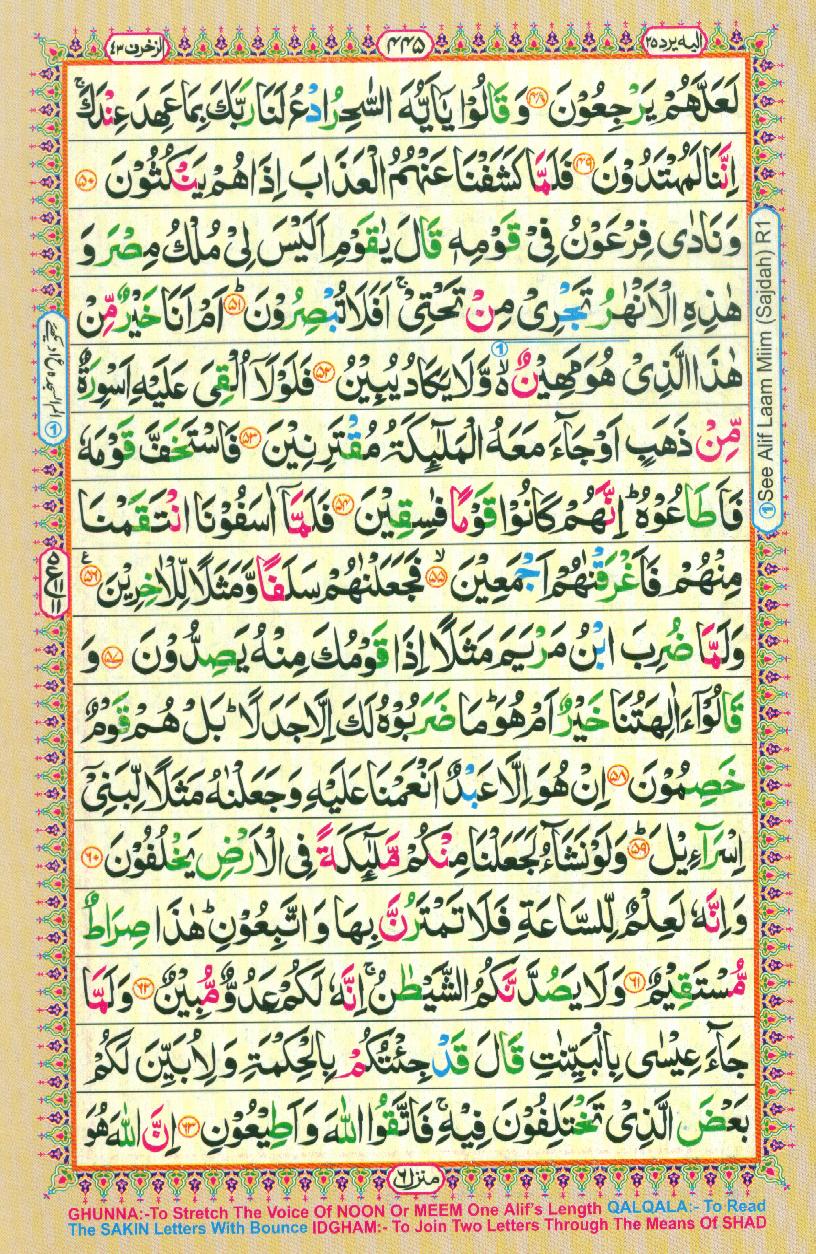 الزخرف ۴۳
۴۴۵
الیه یرد ۲۵
لَعَلَّهُمْ يَرْجِعُوْنَ ۴۸ وَقَالُوْا يٰۤاَيُّهَ السّٰحِرُ ادْعُ لَنَا رَبَّكَ بِمَا عَهِدَ عِنْدَكَ ۚ
اِنَّنَا لَمُهْتَدُوْنَ ۴۹ فَلَمَّا كَشَفْنَا عَنْهُمُ الْعَذَابَ اِذَا هُمْ يَنْكُثُوْنَ ۵۰
وَنَادٰى فِرْعَوْنُ فِىْ قَوْمِهٖ قَالَ يٰقَوْمِ اَلَيْسَ لِىْ مُلْكُ مِصْرَ وَ
هٰذِهِ الْاَنْهٰرُ تَجْرِىْ مِنْ تَحْتِىْ ۚ اَفَلَا تُبْصِرُوْنَ ؕ ۵۱ اَمْ اَنَا خَيْرٌ مِّنْ
هٰذَا الَّذِىْ هُوَ مَهِيْنٌ ۙ۬ وَّلَا يَكَادُ يُبِيْنُ ۵۲ فَلَوْلَاۤ اُلْقِىَ عَلَيْهِ اَسْوِرَةٌ
مِّنْ ذَهَبٍ اَوْ جَآءَ مَعَهُ الْمَلٰٓئِكَةُ مُقْتَرِنِيْنَ ۵۳ فَاسْتَخَفَّ قَوْمَهٗ
فَاَطَاعُوْهُ ؕ اِنَّهُمْ كَانُوْا قَوْمًا فٰسِقِيْنَ ۵۴ فَلَمَّاۤ اٰسَفُوْنَا انْتَقَمْنَا
مِنْهُمْ فَاَغْرَقْنٰهُمْ اَجْمَعِيْنَ ۙ ۵۵ فَجَعَلْنٰهُمْ سَلَفًا وَّمَثَلًا لِّلْاٰخِرِيْنَ ۵۶ ع
وَلَمَّا ضُرِبَ ابْنُ مَرْيَمَ مَثَلًا اِذَا قَوْمُكَ مِنْهُ يَصِدُّوْنَ ۵۷ وَ
قَالُوْٓا ءَاٰلِهَتُنَا خَيْرٌ اَمْ هُوَ ؕ مَا ضَرَبُوْهُ لَكَ اِلَّا جَدَلًا ؕ بَلْ هُمْ قَوْمٌ
خَصِمُوْنَ ۵۸ اِنْ هُوَ اِلَّا عَبْدٌ اَنْعَمْنَا عَلَيْهِ وَجَعَلْنٰهُ مَثَلًا لِّبَنِىْٓ
اِسْرَآءِيْلَ ؕ ۵۹ وَلَوْ نَشَآءُ لَجَعَلْنَا مِنْكُمْ مَّلٰٓئِكَةً فِى الْاَرْضِ يَخْلُفُوْنَ ۶۰
وَاِنَّهٗ لَعِلْمٌ لِّلسَّاعَةِ فَلَا تَمْتَرُنَّ بِهَا وَاتَّبِعُوْنِ ؕ هٰذَا صِرَاطٌ
مُّسْتَقِيْمٌ ۶۱ وَلَا يَصُدَّنَّكُمُ الشَّيْطٰنُ ۚ اِنَّهٗ لَكُمْ عَدُوٌّ مُّبِيْنٌ ۶۲ وَلَمَّا
جَآءَ عِيْسٰى بِالْبَيِّنٰتِ قَالَ قَدْ جِئْتُكُمْ بِالْحِكْمَةِ وَلِاُبَيِّنَ لَكُمْ
بَعْضَ الَّذِىْ تَخْتَلِفُوْنَ فِيْهِ ۚ فَاتَّقُوا اللّٰهَ وَاَطِيْعُوْنِ ۶۳ اِنَّ اللّٰهَ هُوَ
① See Alif Laam Miim (Sajdah) R1
منزل ۶
GHUNNA:-To Stretch The Voice Of NOON Or MEEM One Alif's Length QALQALA:- To Read
The SAKIN Letters With Bounce IDGHAM:- To Join Two Letters Through The Means Of SHAD